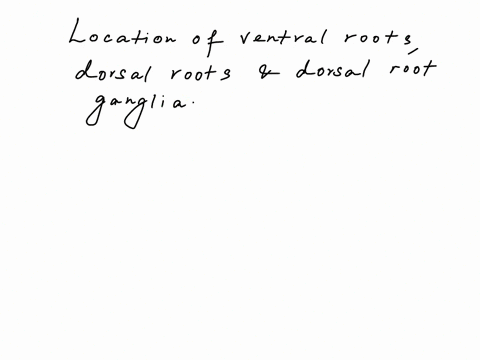 Location of ventral roots,
dorsal roots & dorsal root
ganglia.